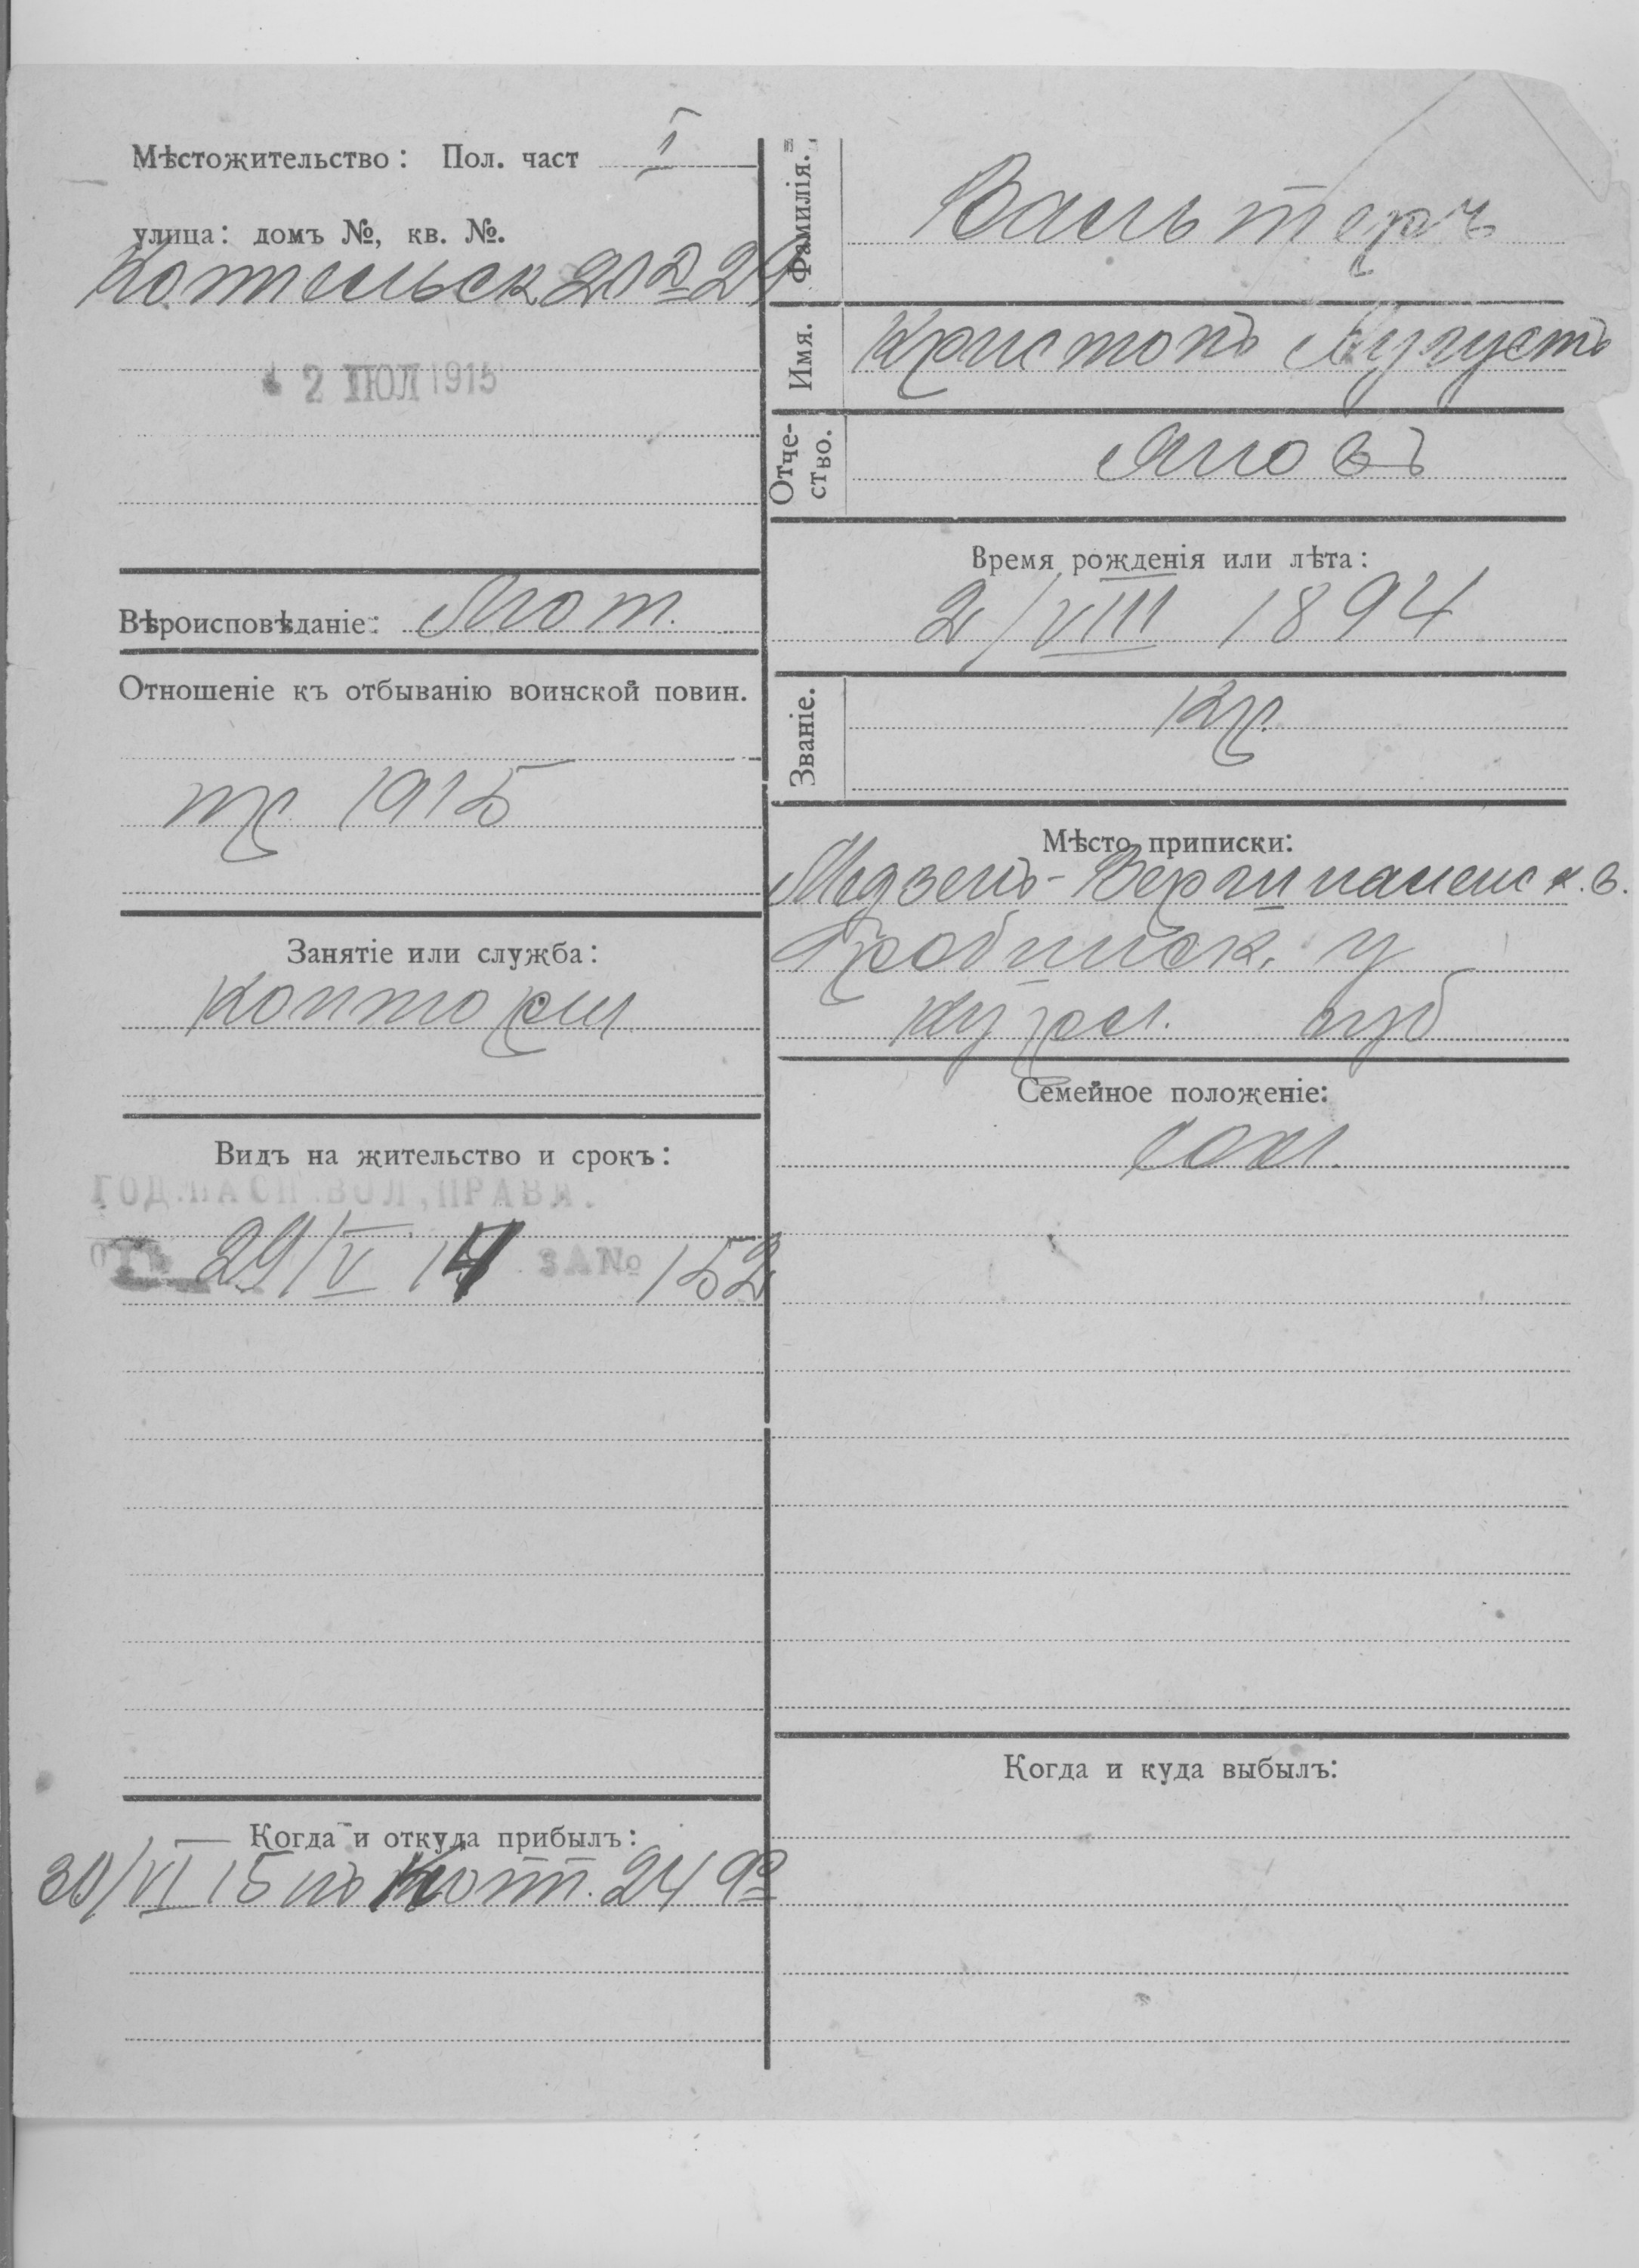 Мѣстожительство: Пол. част I
улица: домъ №, кв. №.
2 ІЮЛ 1915
Вѣроисповѣданіе: Лют.
Отношеніе къ отбыванію воинской повин.
пр. 1915
Занятіе или служба:
конторщ
Видъ на жительство и срокъ:
ГОД. ПАСП. ВОЛ, ПРАВЛ.
ОТЪ 29/V 14 ЗА № 152
Когда и откуда прибылъ:
30/VI 15 24
Фамилія.
Вальтеръ
Имя.
Кристопъ Аугустъ
Отче-
ство.
Яновъ
Время рожденія или лѣта:
2/VIII 1894
Званіе.
кр.
Мѣсто приписки:
Гробинск. у
курл. губ
Семейное положеніе:
хол.
Когда и куда выбылъ: